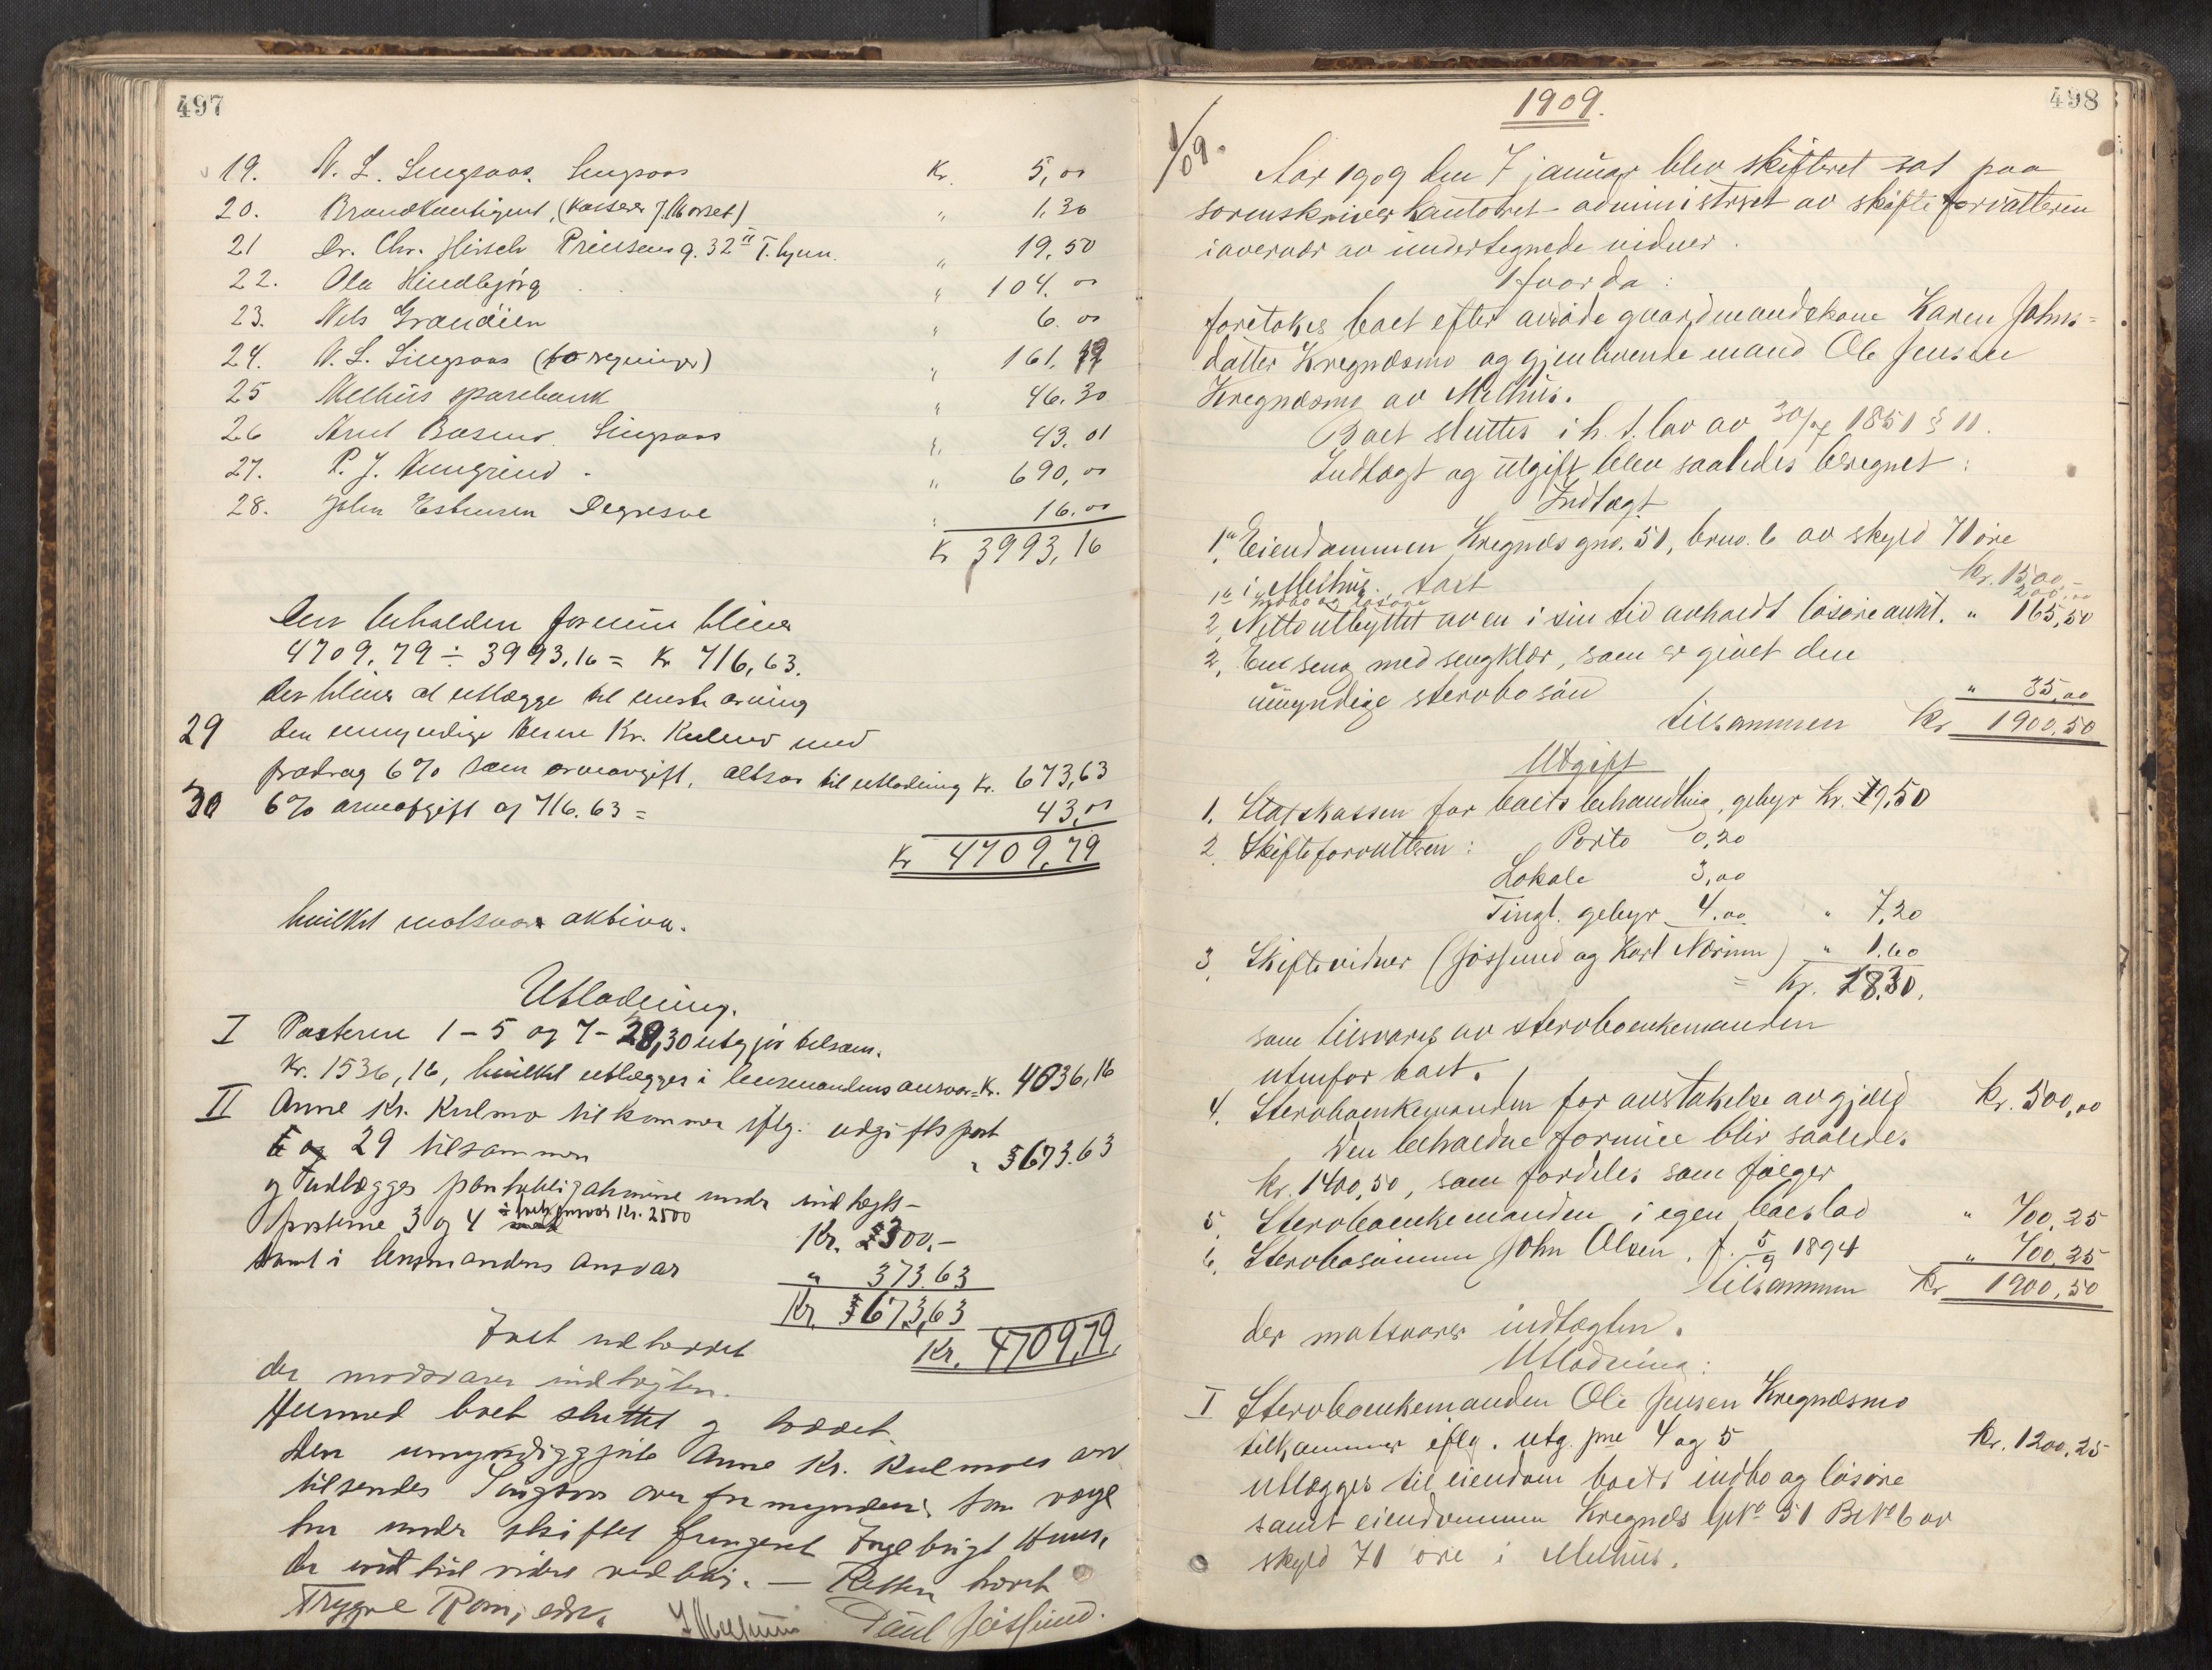 497
19. N. L. Singsaas, Singsaas Kr. 5,00
20. Brandkontigent, (kasserer J. Morset) " 1,30
21 Dr. Chr. Hirsch Prinsens g. 32 II T.hjem. " 19,50
22. Ola Hindbjörg " 104.00
23. Nils Granöien " 6.00
24. N. L. Singsaas (to regninger) " 161,
25 Melhus sparebank " 46.30
26 Arnt Singsaas " 43.01
27. P. J. " 690,00
28. John Estensen " 16.00
Kr 3993,16
Den beholdne formue bliver
4709,79 ÷ 3993,16 = Kr 716,63.
der bliver at utlægge til eneste arving
29 den umyndige Anne Kr. Kulmo med
fradrag 6% som arveavgift, altsaa til utlodning Kr. 673,63
30 6% arveafgift af 716.63 = 43,00
Kr 4709,79
hvilket motsvarer aktiva.
Utlodning.
I Posterne 1-5 og 7-28,30 utgjör tilsam.
Kr. 1536,16, hvilket utlægges i lensmandens ansvar = Kr. 4036,16
II Anne Kr. Kulmo tilkommer iflg. udgiftspost
29 tilsammen " 673.63
og udlægges pantobligationerne under indtægts-
posterne 3 og 4 Kr. 2500 Kr. 300,-
samt i lensmandens ansvar " 373.63
Kr. 673,63
Intet udbordet Kr. 4709,79,
der modsvarer indtægten.
Hermed boet sluttet og hævet.
Den umyndiggjorte Anne Kr. Kulmoes arv
tilsendes Singsaas overformynderi. Som værge
har under skiftet fungeret Ingebrigt
der indtil videre vedblir. — Retten hævet
Trygve Rom, edsv. Paul Jössund.
498
1909.
1/09.
Aar 1909 den 7 januar blev skifteret sat paa
sorenskriverkontoret administreret av skifteforvalteren
i overvær av undertegnede vidner.
Hvorda:
foretokes boet efter avdöde gaardmandskone Karen Johns-
datter Kregnæsmo og gjenlevende mand Ole Jensen
Kregnæsmo av Melhus.
Boet sluttes i h. t. lov av 30/7 1851 § 11.
Indtægt og utgift blev saaledes beregnet:
Indtægt
1a, Eiendommen Kregnæs gno. 51, bruno. 6 av skyld 71 öre
i Melhus, takst Kr. 1500,-
1b indbo og lösöre 200,00
2, Nettoutbyttet av en i sin tid avholdt lösöreaukt. " 165,50
2, En seng med sengklær, som er givet den
umyndige sterbosön " 35,00
tilsammen Kr 1900,50
Utgift
1. Statskassen for boets behandling, gebyr Kr. 19,50
2. Skifteforvalteren: Porto 0,20
Lokale 3,00
Tingl. gebyr 4.00 " 7,20
3, Skiftevidner (Jössund og Karl Nærum) " 1.60
= Kr. 28.30.
som tilsvares av sterboenkemanden
utenfor boet.
4. Sterboenkemanden for overtakelse av gjeld Kr. 500,00
Den beholdne formue blir saaledes
Kr. 1400,50, som fordeles som fölger
5, Sterboenkemanden i egen boeslod " 700,25
6, Sterbosönnen John Olsen, f. 5/9 1894 " 700,25
tilsammen Kr 1900,50
der motsvarer indtægten.
Utlodning:
I Sterboenkemanden Ole Jensen Kregnæsmo
tilkommer iflg. utg. pne 4 og 5 Kr. 1200,25
utlægges til eiendom boets indbo og lösöre
samt eiendommen Kregnæs GNo 51 BrNo 6 av
skyld 71 öre i Melhus.